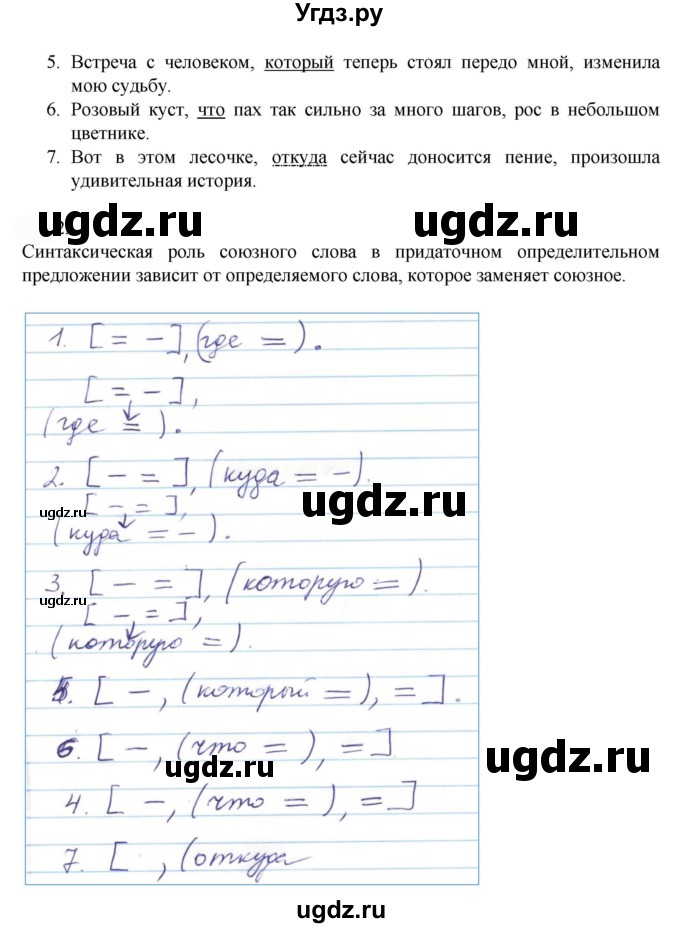 Угдз.ру
5. Встреча с человеком, который теперь стоял передо мной, изменила
мою судьбу.
6. Розовый куст, что пах так сильно за много шагов, рос в небольшом
цветнике.
7. Вот в этом лесочке, откуда сейчас доносится пение, произошла
удивительная история.
ugdz.ru ugdz.ru
2.
Синтаксическая роль союзного слова в придаточном определительном
предложении зависит от определяемого слова, которое заменяет союзное.
1. [ = - ], (где = ).
[ = , - ],
(где = ).
2. [ - = ], (куда = - ).
ugdz.ru
ugdz.ru [ - , = ],
(куда = - ).
3 [ - = ], (которую = ).
ugdz.ru [ - , = ],
(которую = ).
5. [ - , (который = ), = ].
6. [ - , (что = ), = ]
ugdz.ru ugdz.ru
4. [ - , (что = ), = ]
7. [ , (откуда
ugdz.ru